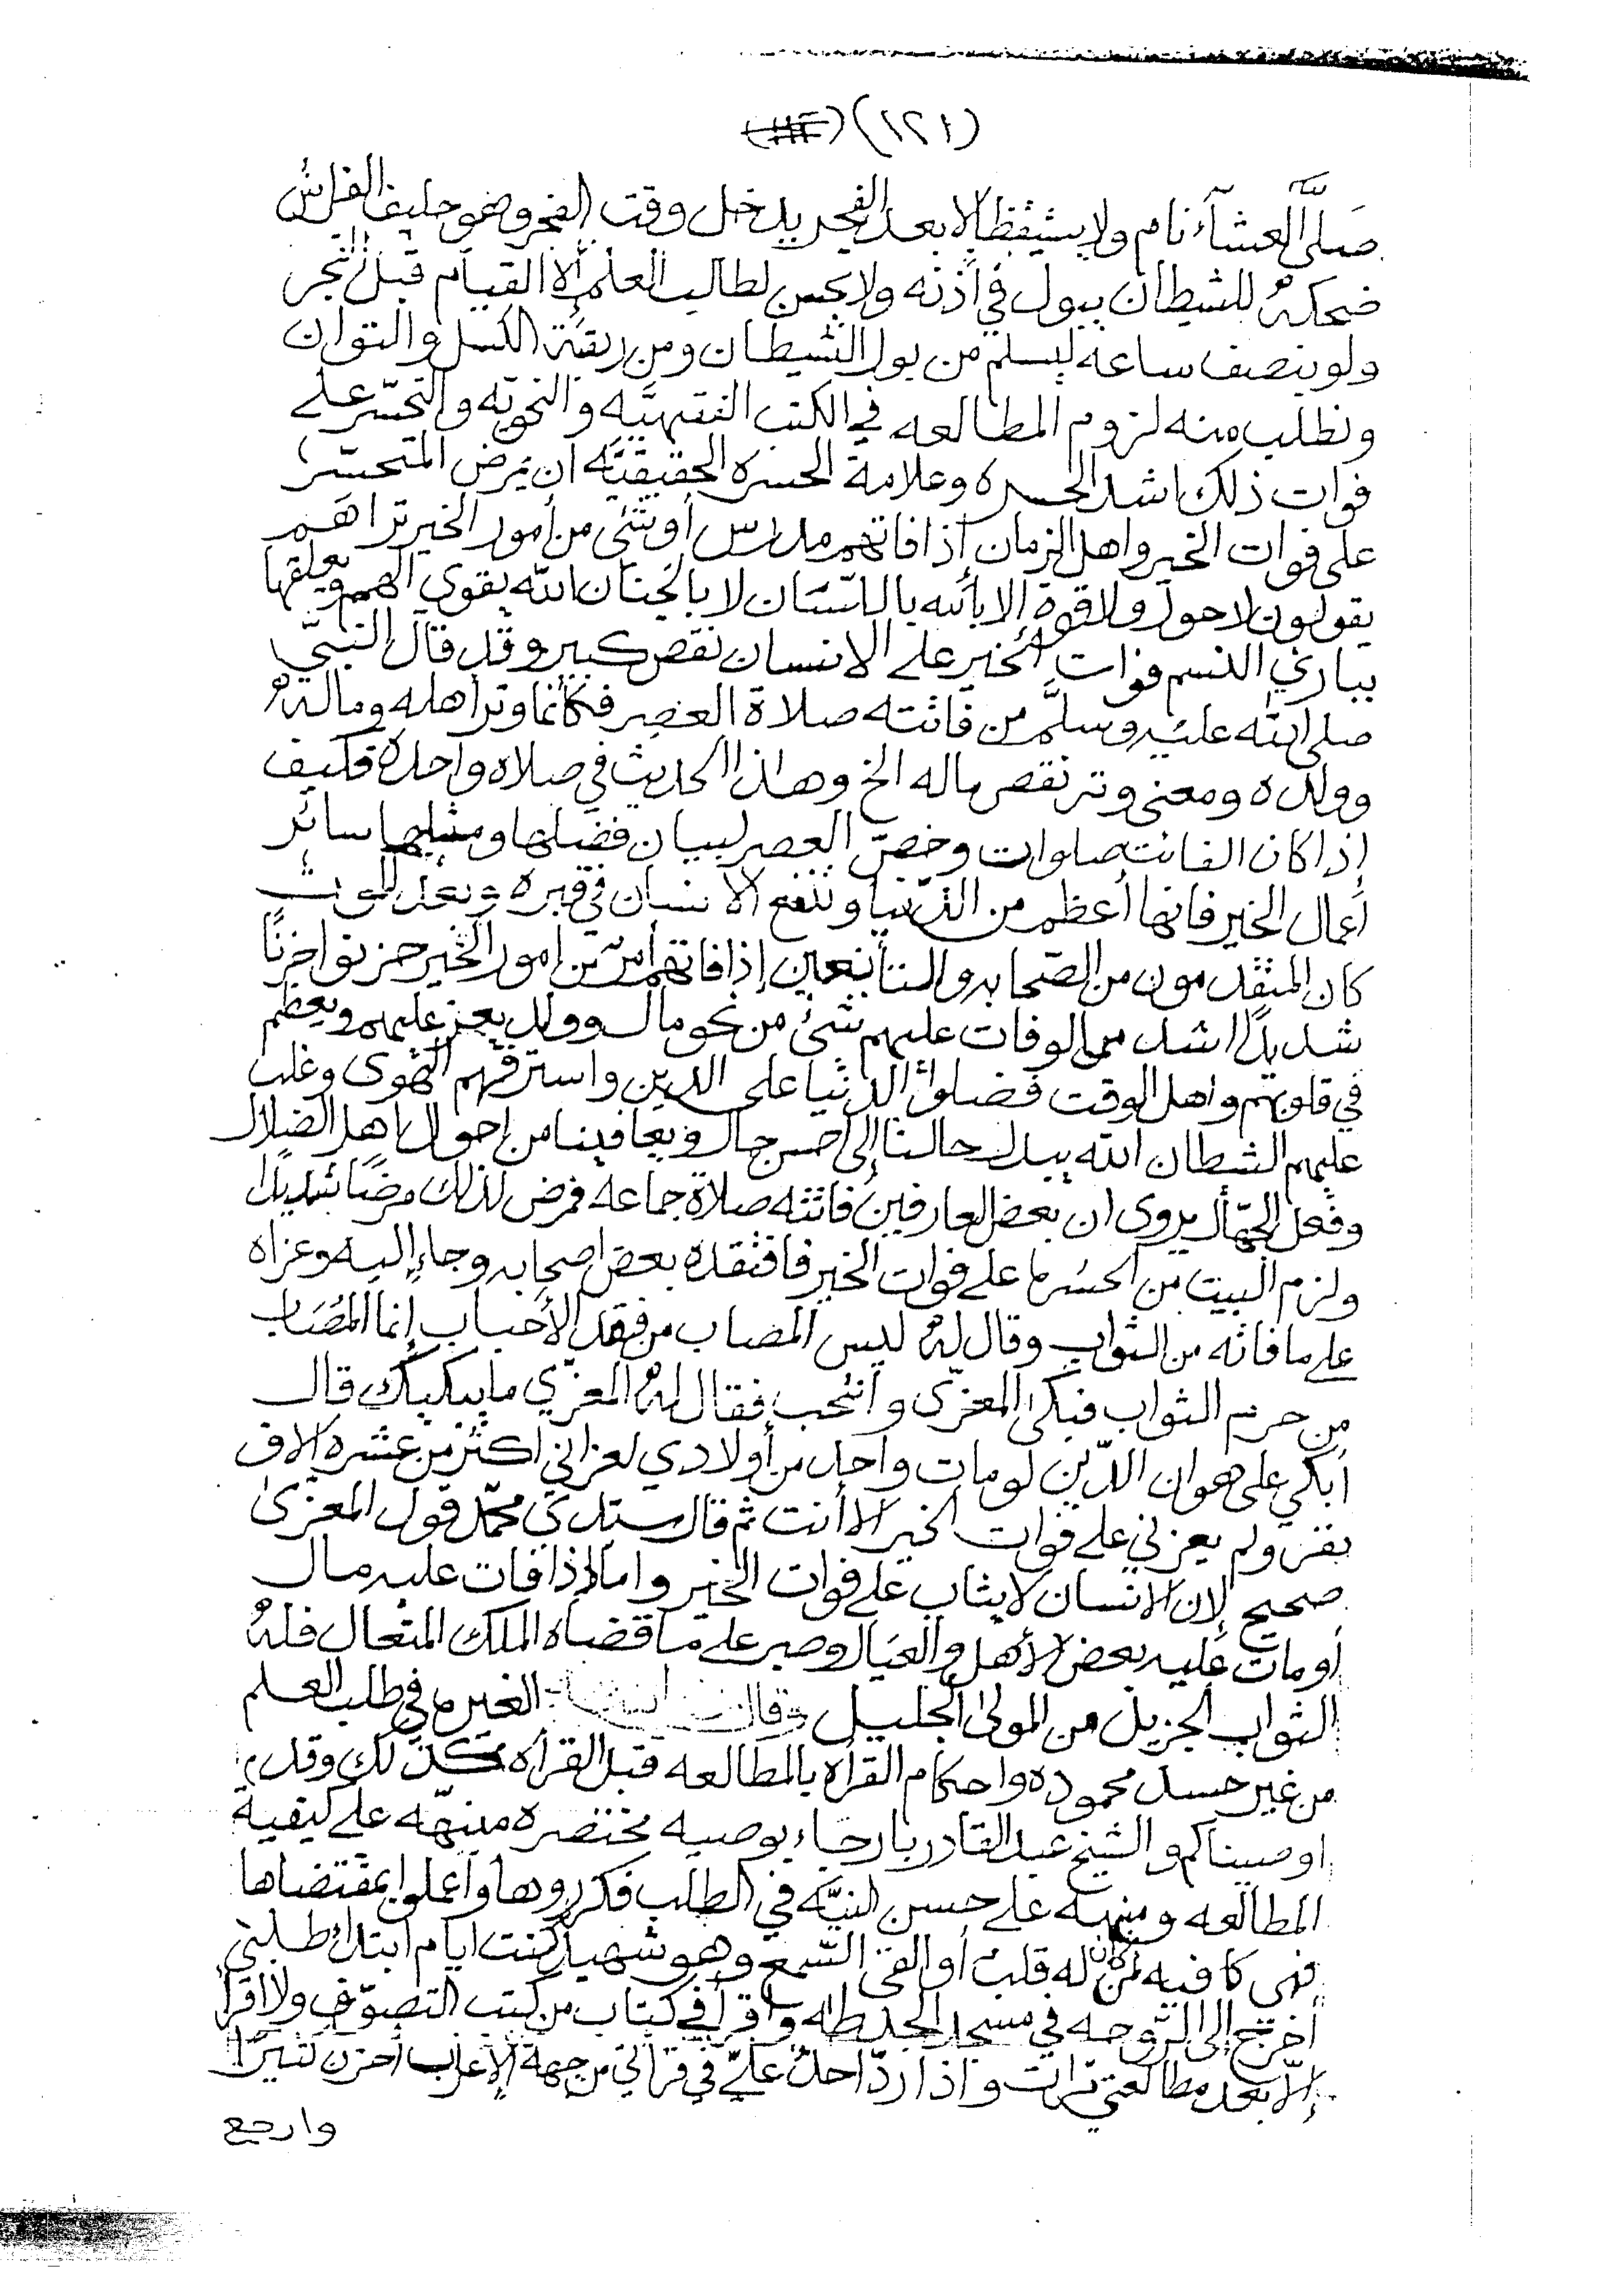 (١٢١)
صلَّى العشآء نام ولا يستيقظ إلا بعد الفجر يدخل وقت الفجر وهو حليف الفراش
ضحكهُ للشيطان يبول في أذنه ولا يحسن لطالب العلم إلا القيام قبل الفجر
ولو بنصف ساعه ليسلم من بول الشيطان ومن ربقة الكسل والتوان
ونطلب منه لزوم المطالعه في الكتب الفقهيَّه والنحويّه والتحسّر على
فوات ذلك اشد الحسره وعلامة الحسره الحقيقيَّه ان يمرض المتحسّر
على فوات الخير واهل الزمان إذا فاتهم مدرس أو شئ من أمور الخير تراهم
يقولون لا حول ولا قوة إلا بالله باللسان لا بالجنان الله يقوي الهمم ويعلقها
بباري النسم فوات الخير على الانسان نقص كبير وقد قال النبيّ
صلى الله عليه وسلَّم من فاتته صلاة العصر فكأنما وتر اهله وماله
وولده ومعنى وتر نقص ماله الخ وهاذا الحديث في صلاه واحده فكيف
إذا كان الفائت صلوات وخصّ العصر لبيان فضلها ومثلها سائر
أعمال الخير فانها أعظم من الدّنيا وتنفع الانسان في قبره وبعد الموت
كان المتقدمون من الصّحابه والتأبعين إذا فاتهم أمرٌ من امور الخير حزنوا حزنًا
شديدًا اشد مما لو فات عليهم شئ من نحو مال وولد يعز عليهم ويعظم
في قلوبهم واهل الوقت فضلوا الدنيا على الدين واسترقهم الهوى وغلب
عليهم الشطان الله يبدل حالنا إلى احسن حال ويعافينا من احوال اهل الضلال
وفعل الجهّال يروى ان بعض العارفين فاتته صلاة جماعه فمرض لذلك مرضًا شديدًا
ولزم البيت من الحسره على فوات الخير فافتقده بعض اصحابه وجاء إليه وعزاه
على ما فاته من الثواب وقال لهُ ليس المصاب من فقد الأحباب إنما المُصَاب
من حرم الثواب فبكى المعزّى وانتحب فقال لهُ المعزّي ما يبكيك قال
أبكي على هوان الدّين لو مات واحد من أولادي لعزاني اكثر من عشره الاف
نفر ولم يعزني على فوات الخير الا أنت ثم قال سيدي محمّد قول المعزّى
صحيح لان الانسان لا يثاب على فوات الخير واما إذا فات عليه مال
أو مات عليه بعض الأهل والعيال وصبر على ما قضاه الملك المتعال فلهُ
الثواب الجزيل من المولى الجليل وقال الغيره في طلب العلم
من غير حسد محموده واحكام القرأه بالمطالعه قبل القرأه كذلك وقد
اوصيناكم والشيخ عبد القادر بارجاء بوصيه مختصره منبهّه على كيفية
المطالعه ومنبهه على حسن النيَّه في الطلب فكرروها وأعملوا بمقتضاها
فهي كافيه لمن كان له قلب أو القى السّمع وهو شهيد كنت ايام ابتداء طلبي
أخرج إلى الرّوحه في مسجد الحديطه واقرأ في كتاب من كتب التصوّف ولا اقرأ
إلاّ بعد مطالعتي مرات وإذا ردّ احدٌ عليّ في قرأتي من جهة الإعراب أحزن كثيرًا
وارجع